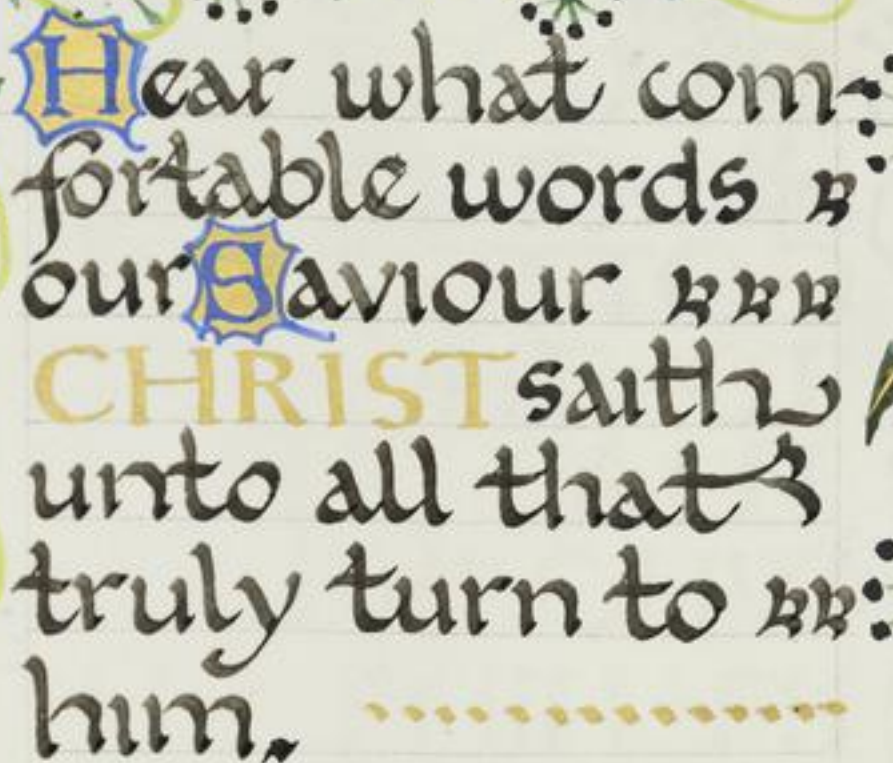 Hear what com-
fortable words
our Saviour
CHRIST saith
unto all that
truly turn to
him.